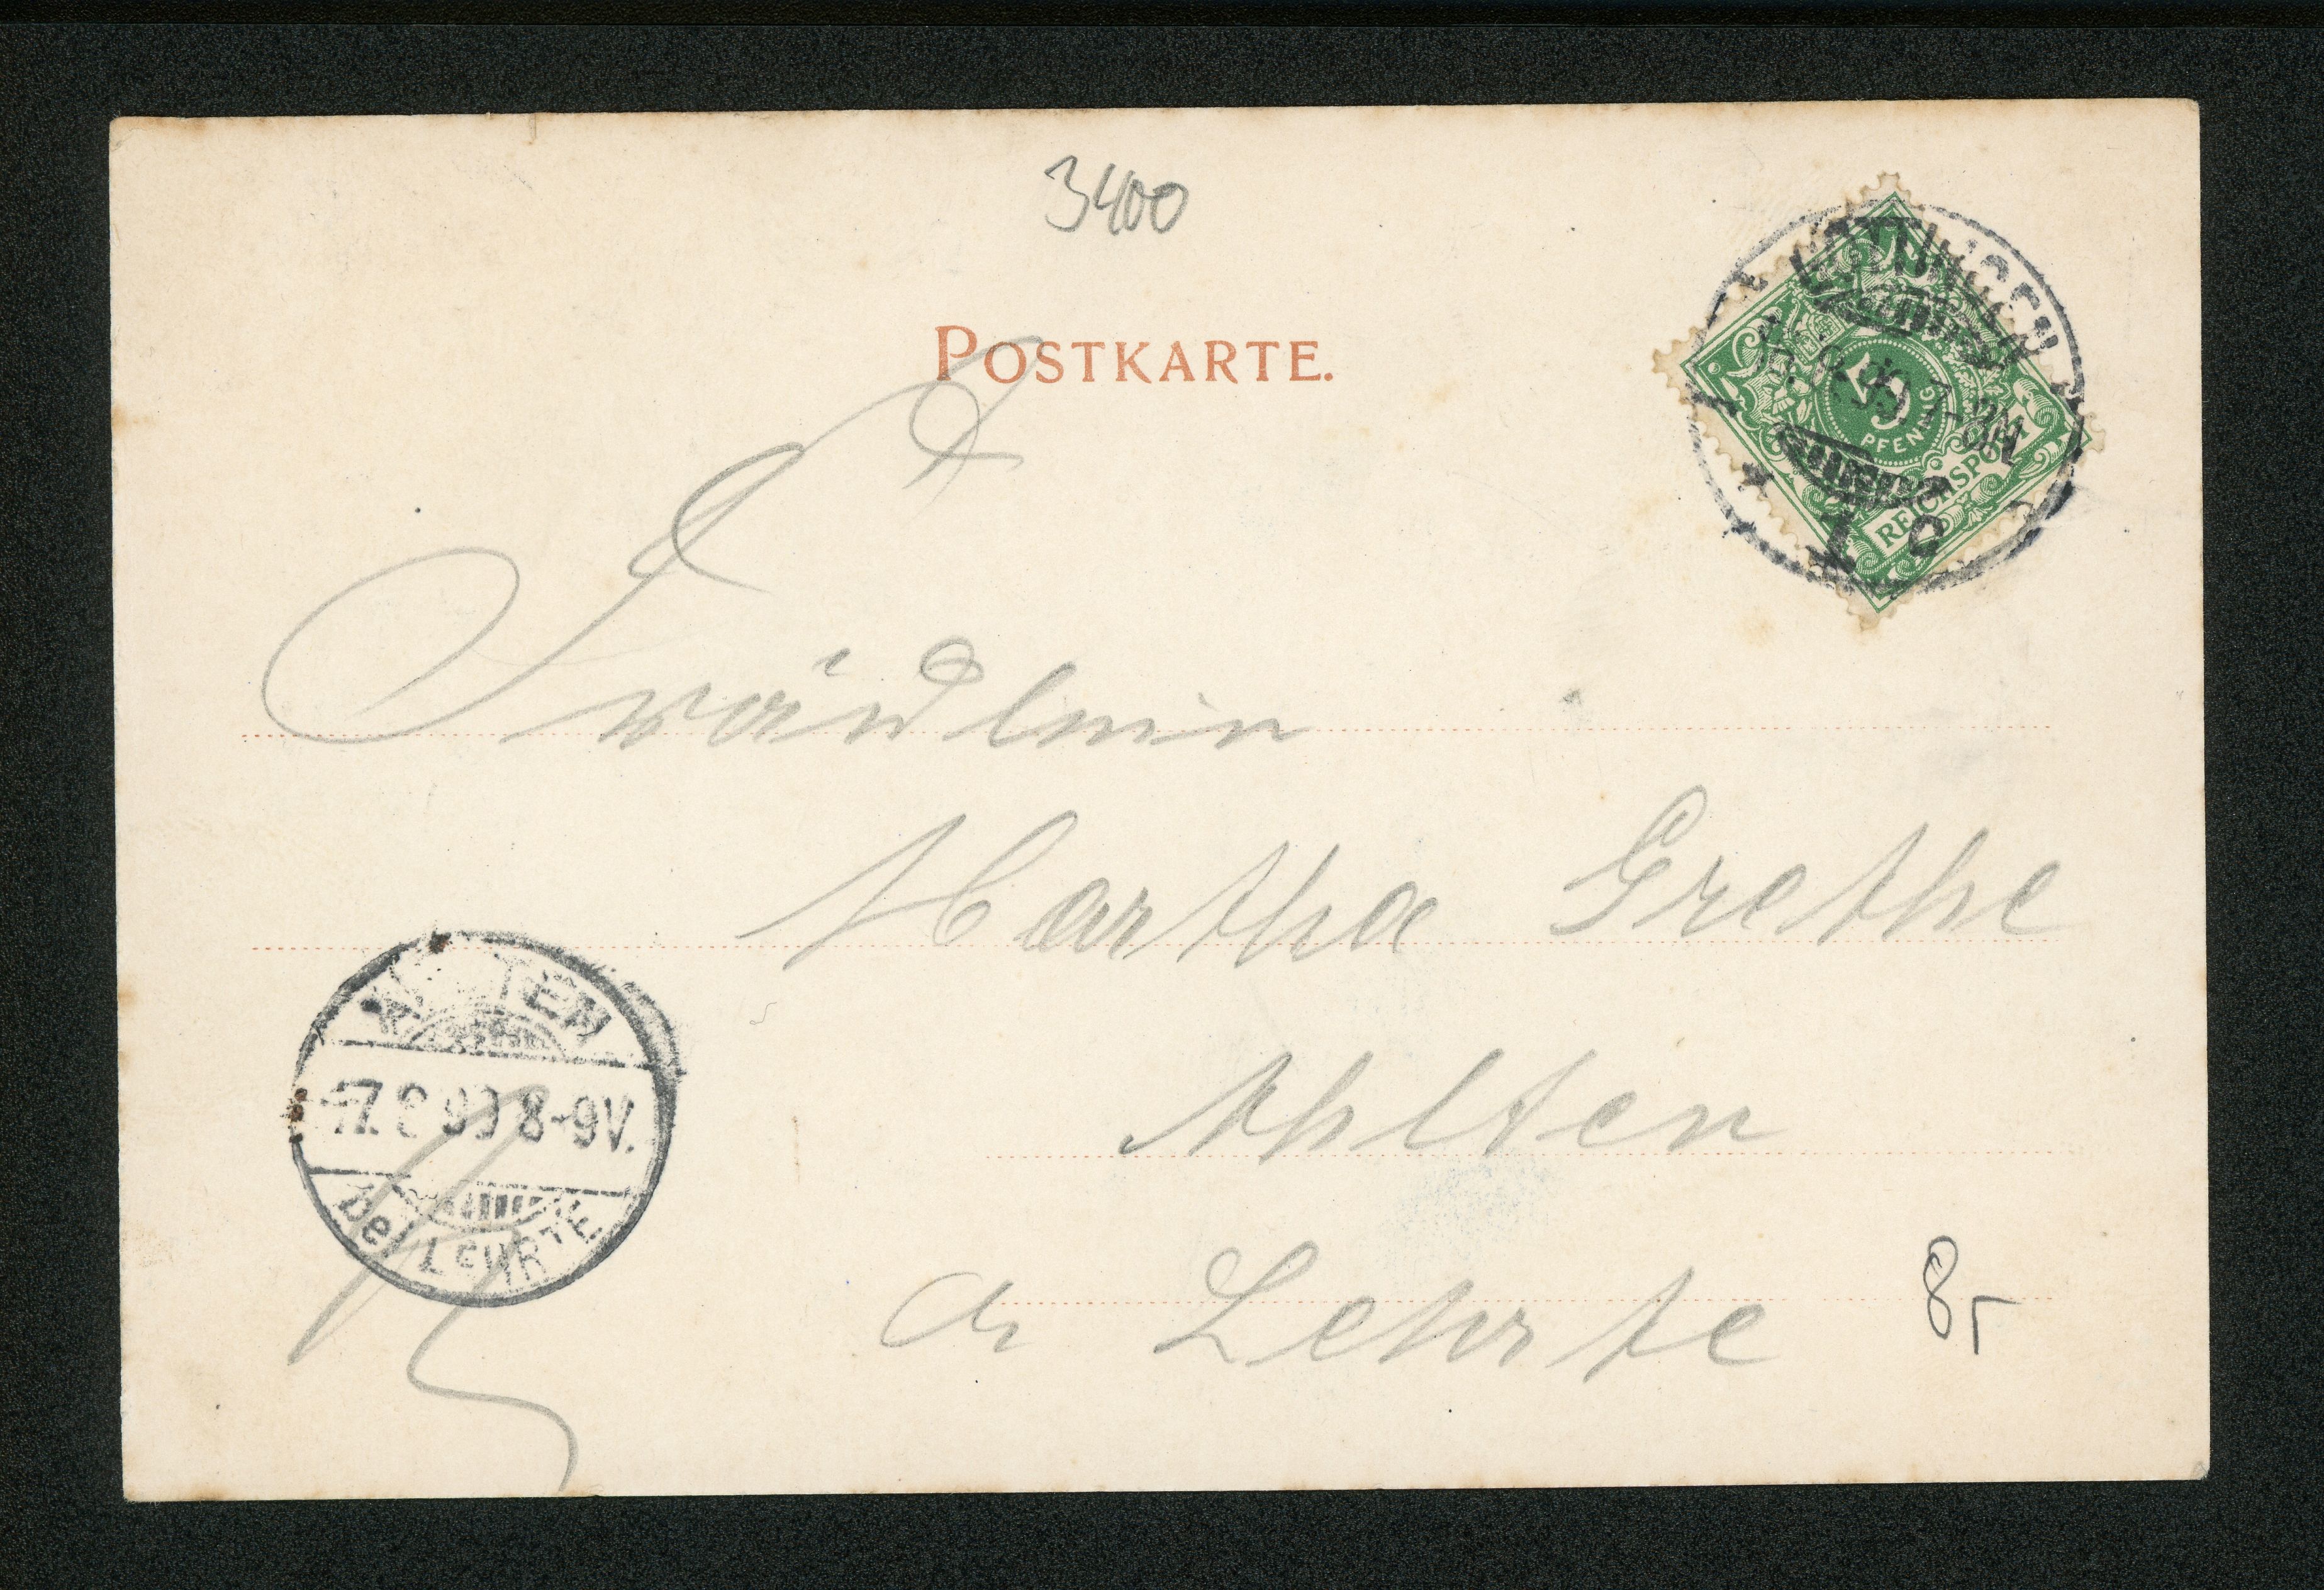 3400
POSTKARTE.
GÖTTINGEN
99 7-8N.
1 c
5
PFENNIG
REICHSPOST
Fräulein
Martha Grethe
Ahlten
a Lehrte
8,-
AHLTEN
17.8 99 8-9V.
bei LEHRTE